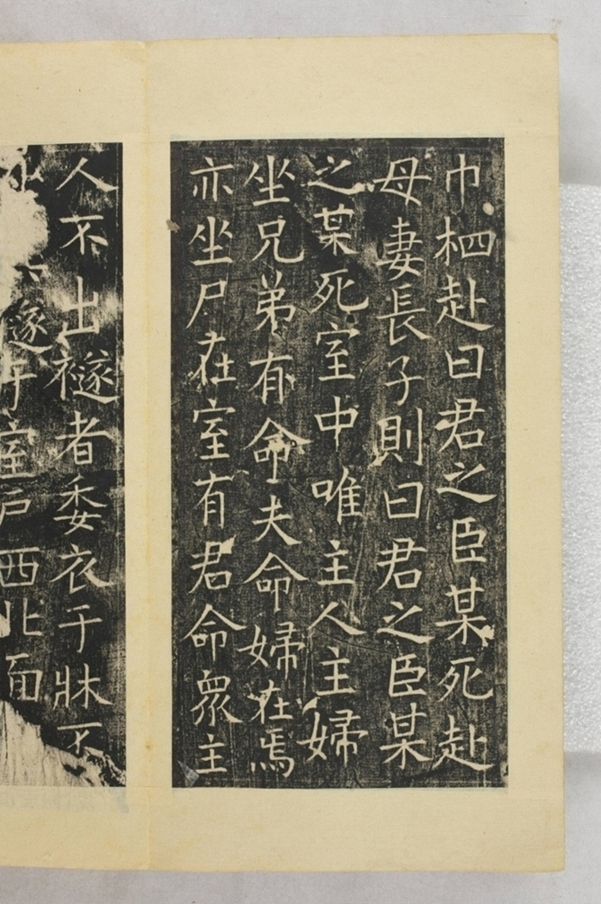 巾柶赴曰君之臣某死赴
母妻長子則曰君之臣某
之某死室中唯主人主婦
坐兄弟有命夫命婦在焉
亦坐尸在室有君命眾主
人不出襚者委衣于牀不
襚于室戶西北面